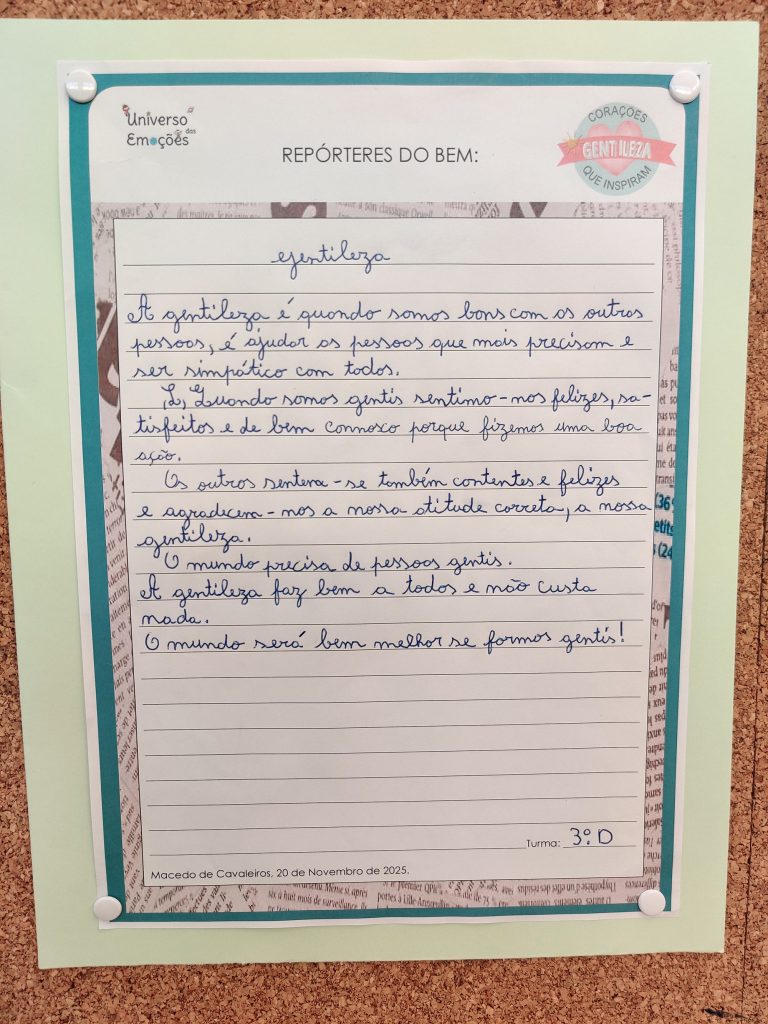 Universo
das
Emoções
CORAÇÕES
GENTILEZA
QUE INSPIRAM
REPÓRTERES DO BEM:
gentileza
A gentileza é quando somos bons com os outros
pessoas, é ajudar as pessoas que mais precisam e
ser simpático com todos.
Quando somos gentis sentimo-nos felizes, sa-
tisfeitos e de bem connosco porque fizemos uma boa
ação.
Os outros sentem-se também contentes e felizes
e agradecem-nos a nossa atitude correta, a nossa
gentileza.
O mundo precisa de pessoas gentis.
A gentileza faz bem a todos e não custa
nada.
O mundo será bem melhor se formos gentis!
Turma: 3º D
Macedo de Cavaleiros, 20 de Novembro de 2025.